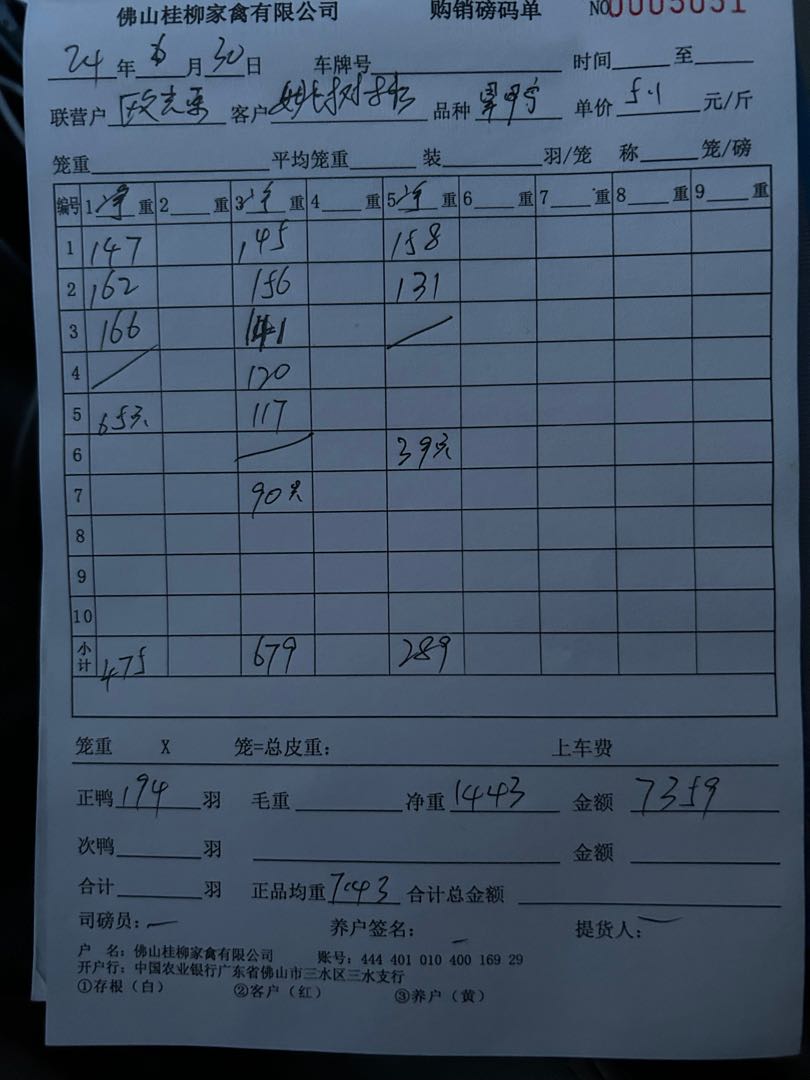 佛山桂柳家禽有限公司 购销磅码单 NO0005031
24年6月30日 车牌号 时间 至
联营户 客户 品种 单价5.1元/斤
笼重 平均笼重 装 羽/笼 称 笼/磅
编号 1净重 2 重 3净重 4 重 5净重 6 重 7 重 8 重 9 重
1 147 145 158
2 162 156 131
3 166 141
4 120
5 65只 117
6 39只
7 90只
8
9
10
小计 475 679 289
笼重 X 笼=总皮重： 上车费
正鸭194羽 毛重 净重1443 金额7359
次鸭 羽 金额
合计 羽 正品均重7.43 合计总金额
司磅员： 养户签名： 提货人：
户 名：佛山桂柳家禽有限公司 账号：444 401 010 400 169 29
开户行：中国农业银行广东省佛山市三水区三水支行
①存根（白） ②客户（红） ③养户（黄）